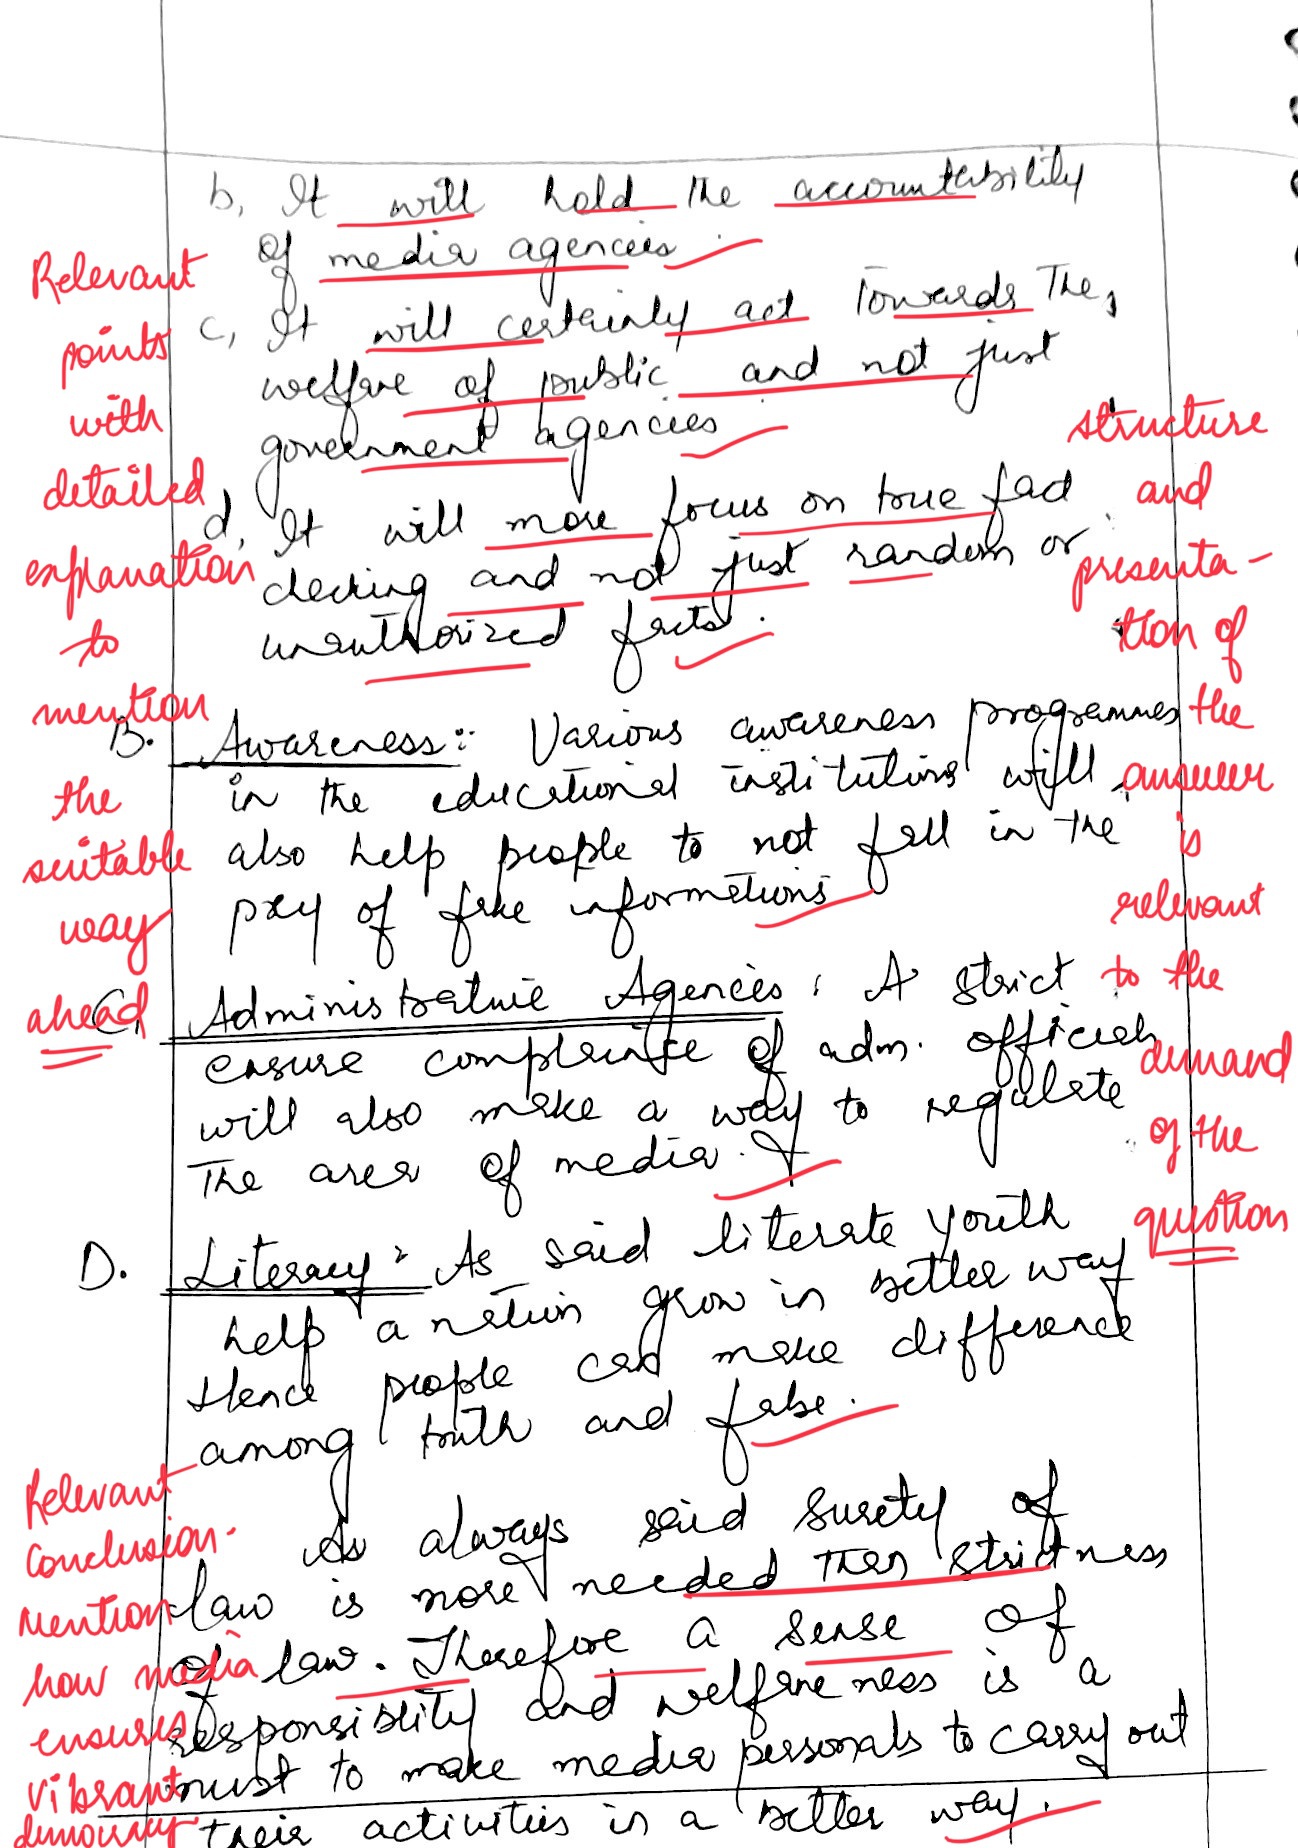 b, It will hold the accountability
of media agencies.
c, It will certainly act towards the
welfare of public and not just
government agencies
d, It will more focus on true fact
checking and not just random or
unauthorized facts.
B. Awareness: Various awareness programmes
in the educational institutions will
also help people to not fall in the
prey of fake informations
C, Administrative Agencies: A strict
ensure compliance of adm. officials
will also make a way to regulate
The area of media.
D. Literacy: As said literate youth
help a nation grow in better way
Hence people can make difference
among truth and false.
As always said surety of
law is more needed then strictness
of law. Therefore a sense of
responsibility and welfareness is a
must to make media personals to carry out
their activities in a better way.
Relevant
points
with
detailed
explanation
to
mention
the
suitable
way
ahead
structure
and
presenta-
tion of
the
answer
is
relevant
to the
demand
of the
question
Relevant
conclusion.
Mention
how media
ensures
vibrant
democracy